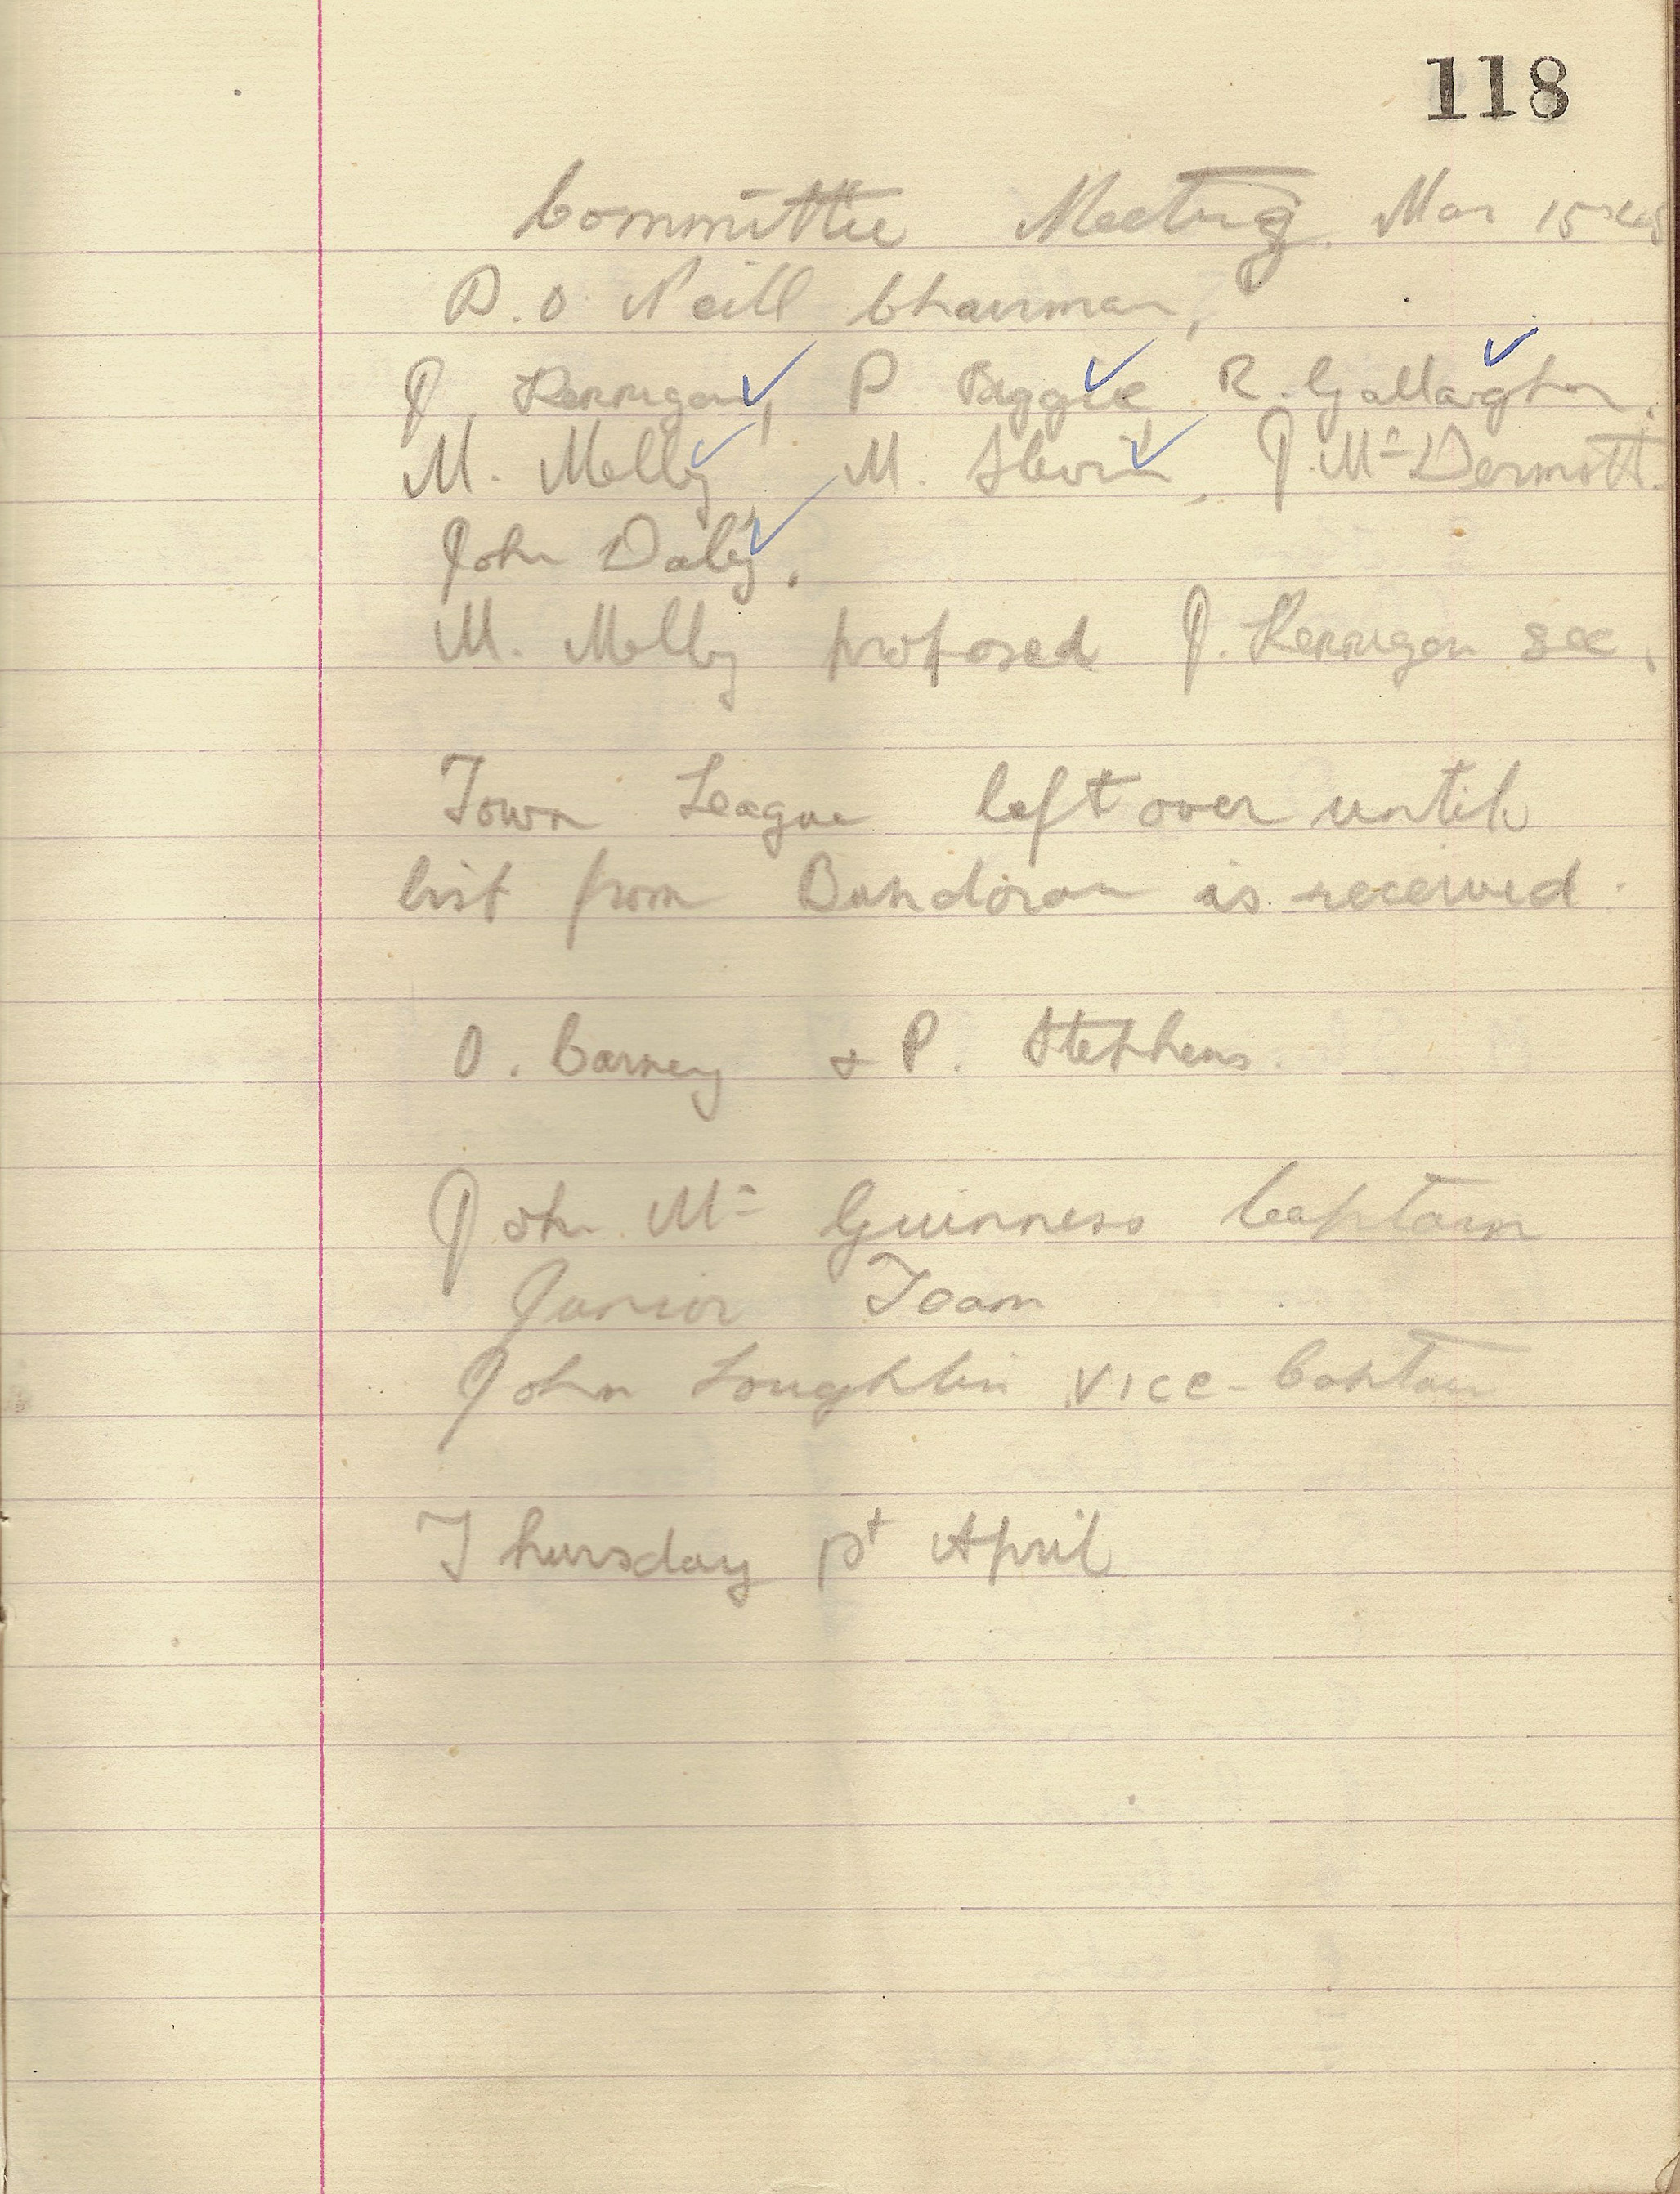 118
Committee Meeting. Mar 15th 48
P. O Neill Chairman,
J. Kerrigan, P Beggie, R. Gallaugher,
M. Melly, M. Slevin, J. Mc Dermott.
John Daly.
M. Melly proposed J. Kerrigan sec.
Town League left over until
list from Bundoran is received.
O. Carney & P. Stephens.
John Mc Guinness Captain
Junior Team
John Loughlin Vice-Captain
Thursday 1st April